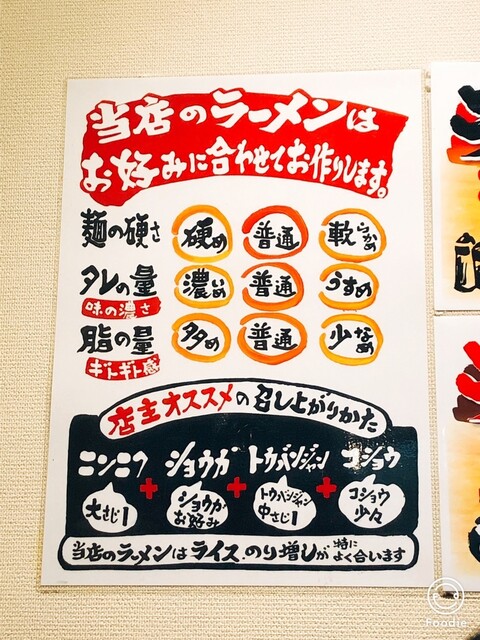 当店のラーメンは
お好みに合わせてお作りします。
麺の硬さ 硬め 普通 軟らかめ
タレの量 濃いめ 普通 うすめ
味の濃さ
脂の量 多め 普通 少なめ
ギトギト感
店主オススメの召し上がりかた
ニンニク + ショウガ + トウバンジャン + コショウ
大さじ1 ショウガお好み トウバンジャン中さじ1 コショウ少々
当店のラーメンはライス、のり増しが特によく合います
Foodie